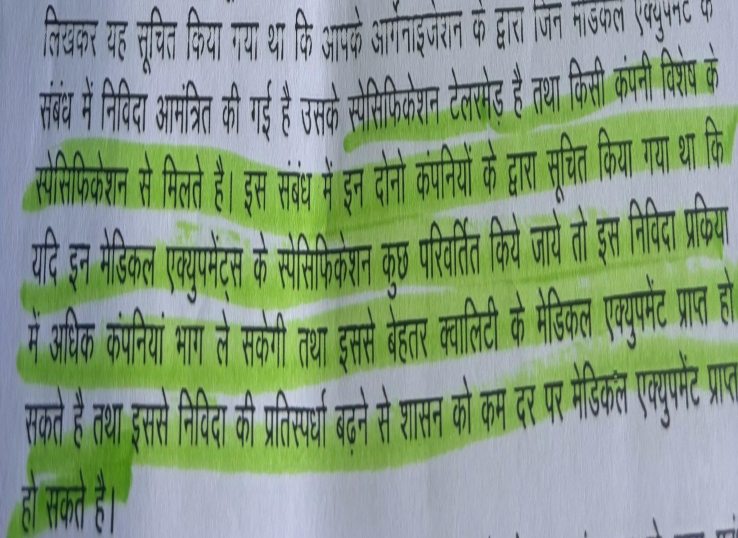 लिखकर यह सूचित किया गया था कि आपके आर्गेनाइजेशन के द्वारा जिन मेडिकल एक्युपमेंट के
संबंध में निविदा आमंत्रित की गई है उसके स्पेसिफिकेशन टेलरमेड़ है तथा किसी कंपनी विशेष के
स्पेसिफिकेशन से मिलते है। इस संबंध में इन दोनो कंपनियों के द्वारा सूचित किया गया था कि
यदि इन मेडिकल एक्युपमेंट्स के स्पेसिफिकेशन कुछ परिवर्तित किये जाये तो इस निविदा प्रकिया
में अधिक कंपनियां भाग ले सकेगी तथा इससे बेहतर क्वालिटी के मेडिकल एक्युपमेंट प्राप्त हो
सकते है तथा इससे निविदा की प्रतिस्पर्धा बढ़ने से शासन को कम दर पर मेडिकल एक्युपमेंट प्राप्त
हो सकते है।